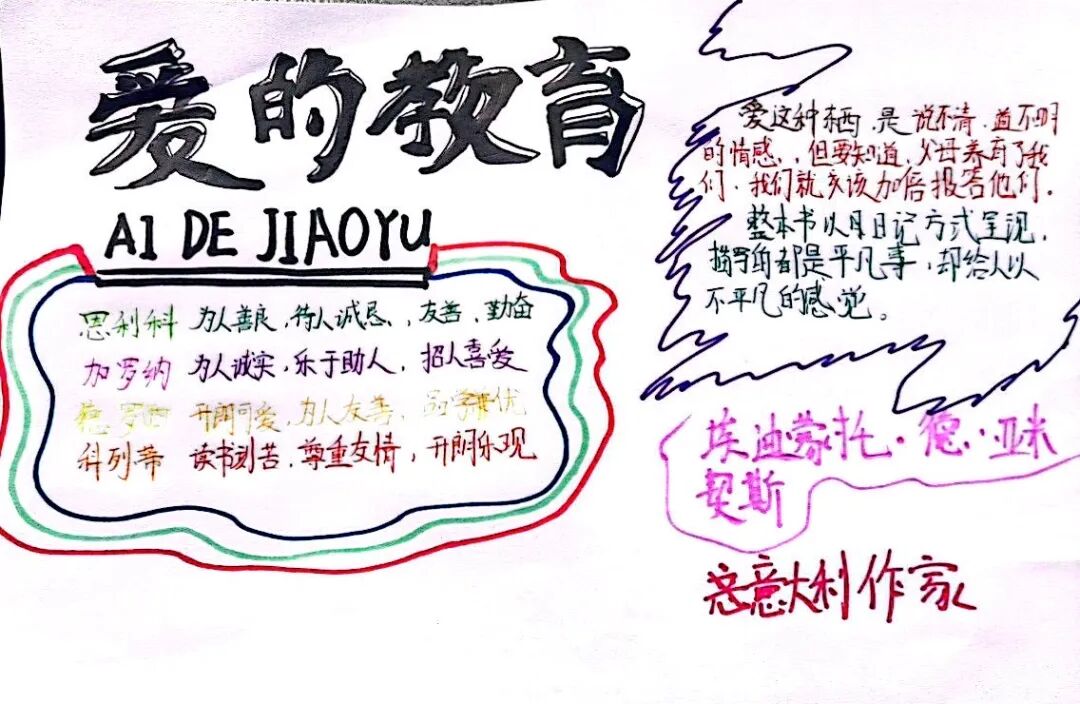 爱的教育
AI DE JIAOYU
恩利科 为人善良,待人诚恳,友善、勤奋
加罗纳 为人诚实,乐于助人,招人喜爱
德罗西 开朗可爱,为人友善,品学兼优
科列蒂 读书刻苦、尊重友情,开朗乐观
爱这种东西是说不清、道不明
的情感,但要知道,父母养育了我
们,我们就应该加倍报答他们。
整本书以日记方式呈现,
描写的都是平凡事,却给人以
不平凡的感觉。
埃迪蒙托·德·亚米
契斯
意大利作家